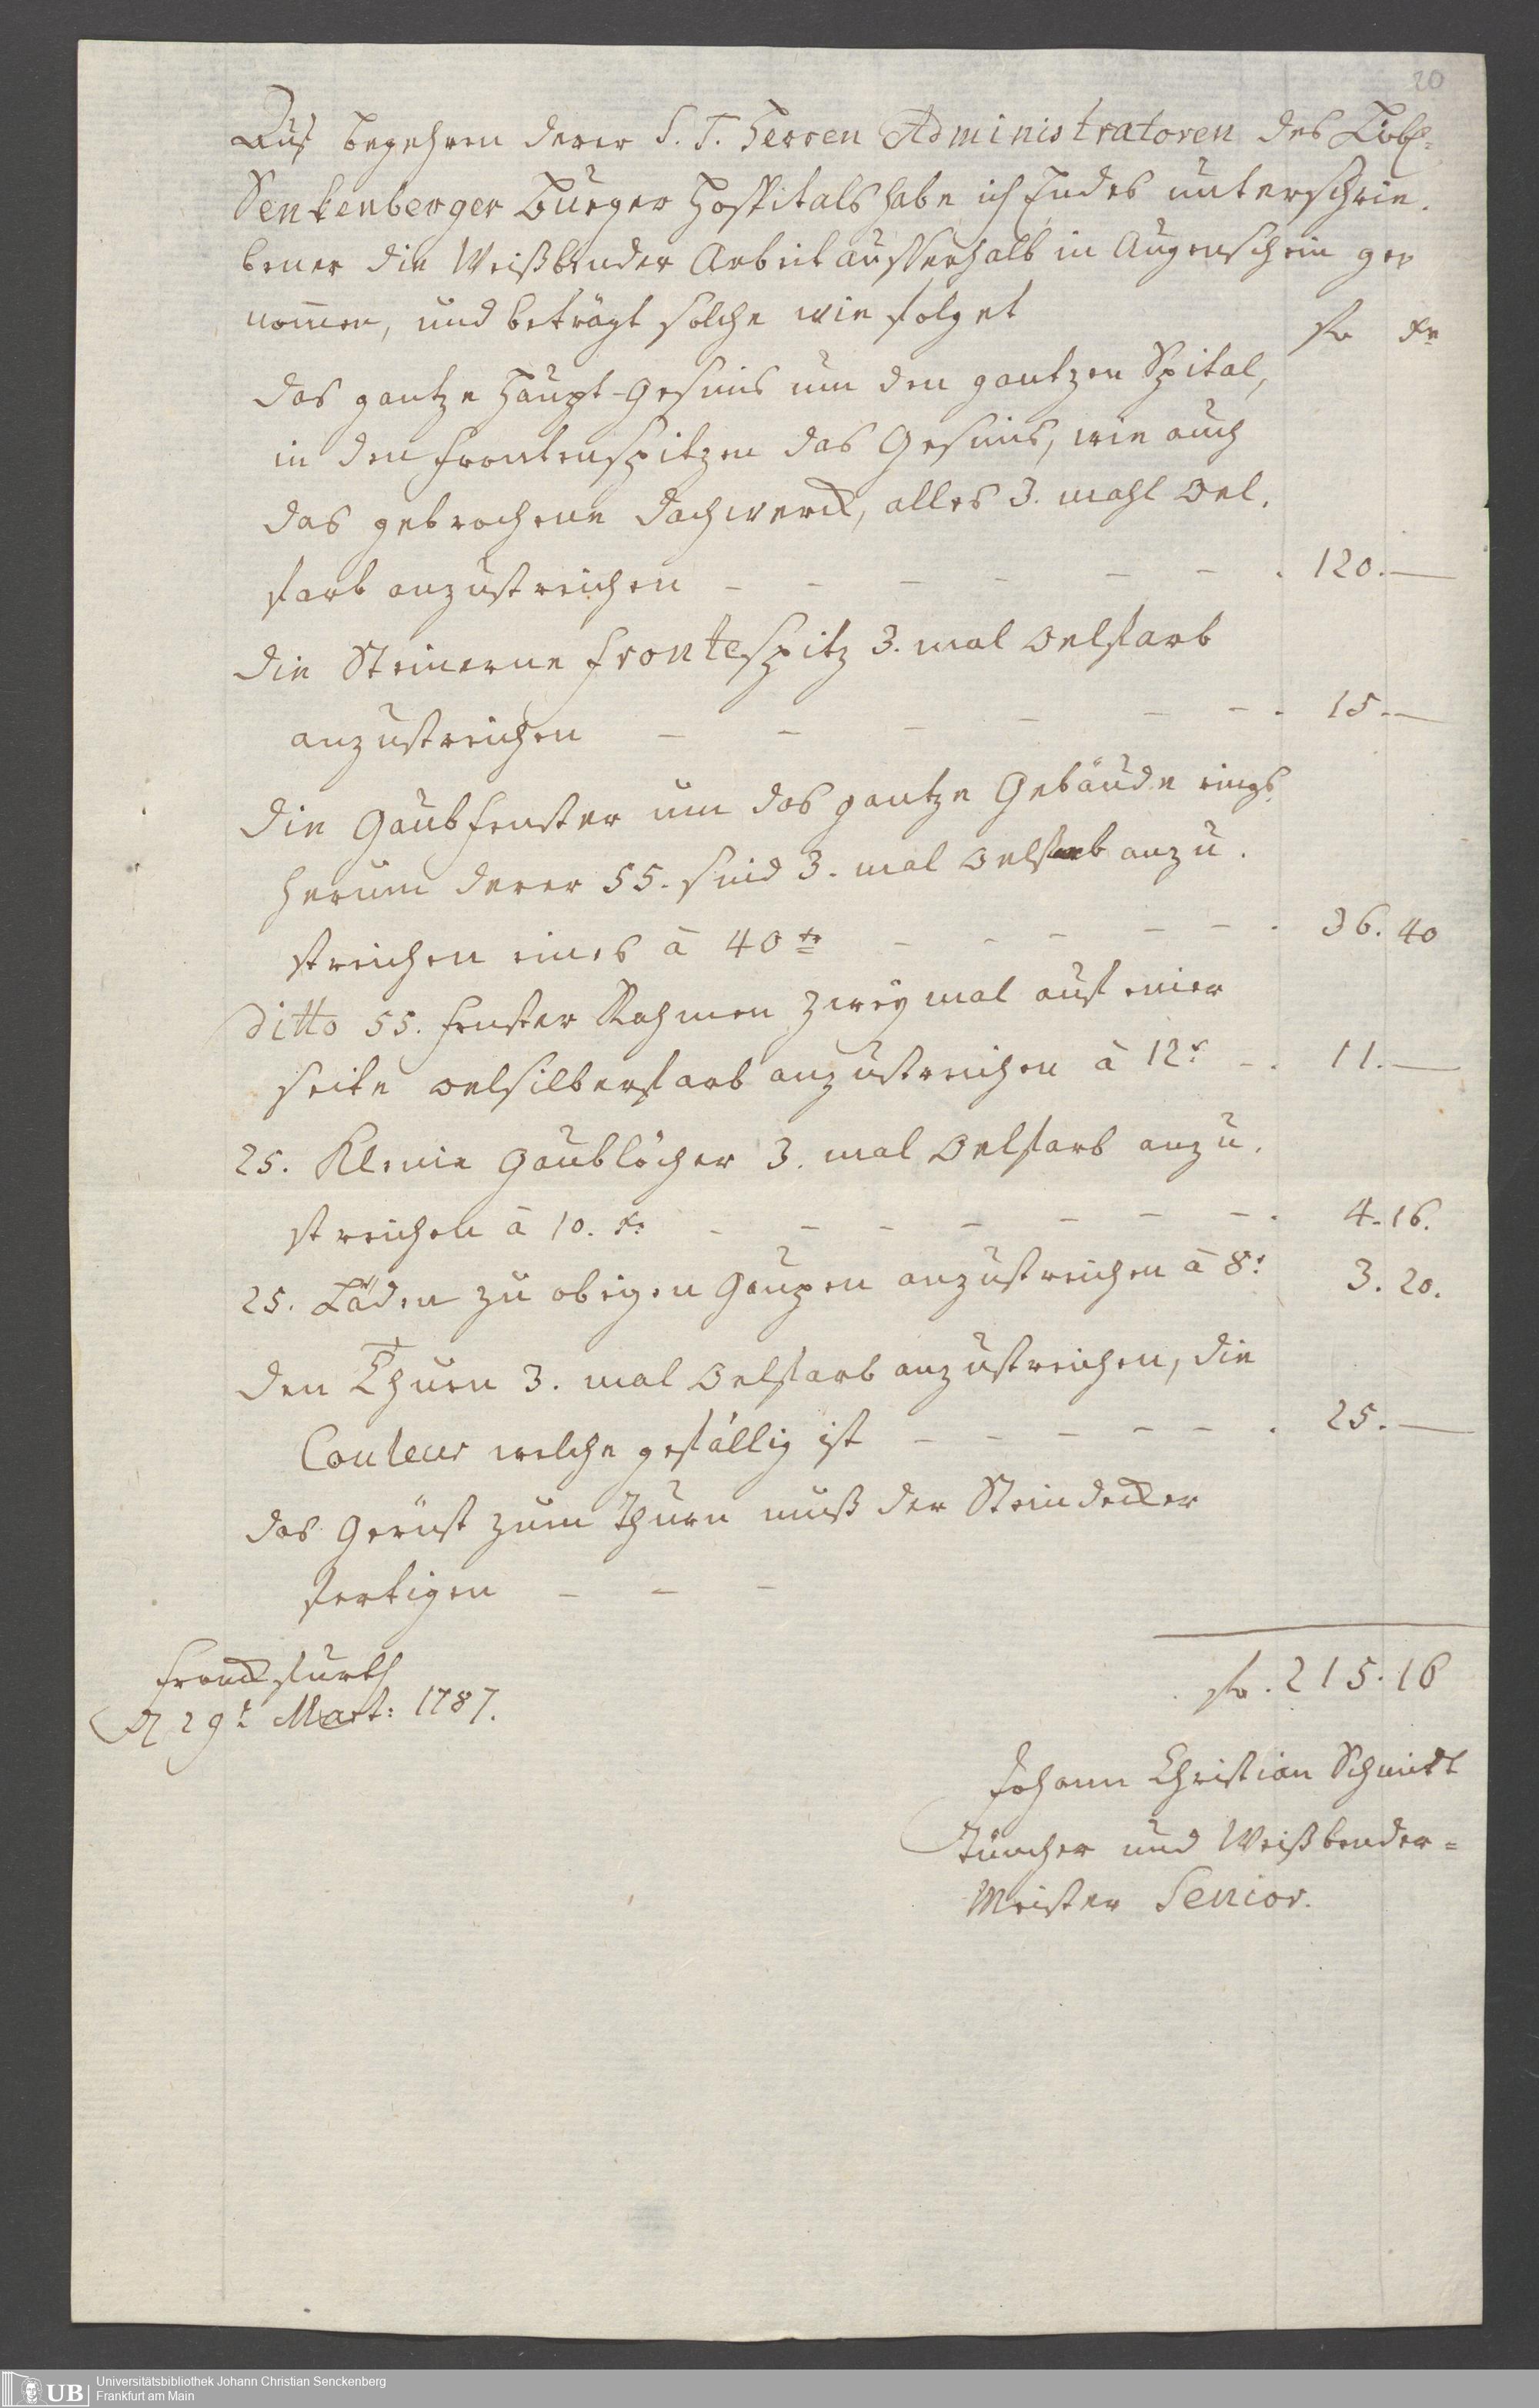 20
Auf begehren derer S. T. Herren Administratoren des Löbl.
Senkenberger Burger Hospitals habe ich Endes unterschrie-
bener die Weißbender Arbeit ausserhalb in Augenschein ge-
nom̄en, und beträgt solche wie folget
fl xr
das gantze Haupt-Gesims um den gantzen Spital,
in den Frontenspitzen das Gesims, wie auch
das gebrochene Dachwerck, alles 3. mahl Oel-
farb anzustreichen - - - - - - - 120. —
die Steinerne Frontespitz 3. mal Oelfarb
anzustreichen - - - - - - - 15. —
die Gaubfenster um das gantze Gebäude rings
herum derer 55. sind 3. mal Oelfarb anzu-
streichen eines à 40 xr - - - - - - 36. 40
ditto 55. Fenster Rahmen zweymal auf einer
seite oelsilberfarb anzustreichen à 12 x - - 11. —
25. Kleine Gaublöcher 3. mal Oelfarb anzu-
streichen à 10. x. - - - - - - - - 4. 16.
25. Läden zu obigen Gaupen anzustreichen à 8 x 3. 20.
den Thurn 3. mal Oelfarb anzustreichen, die
Couleur welche gefällig ist - - - - - - 25. —
das Gerüst zum Thurn muß der Steindecker
fertigen - - -
fl. 215. 16
Franckfurth
d 29t Mart: 1787.
Johann Christian Schmidt
Tüncher und Weißbender-
Meister Senior.
UB
Universitätsbibliothek Johann Christian Senckenberg
Frankfurt am Main